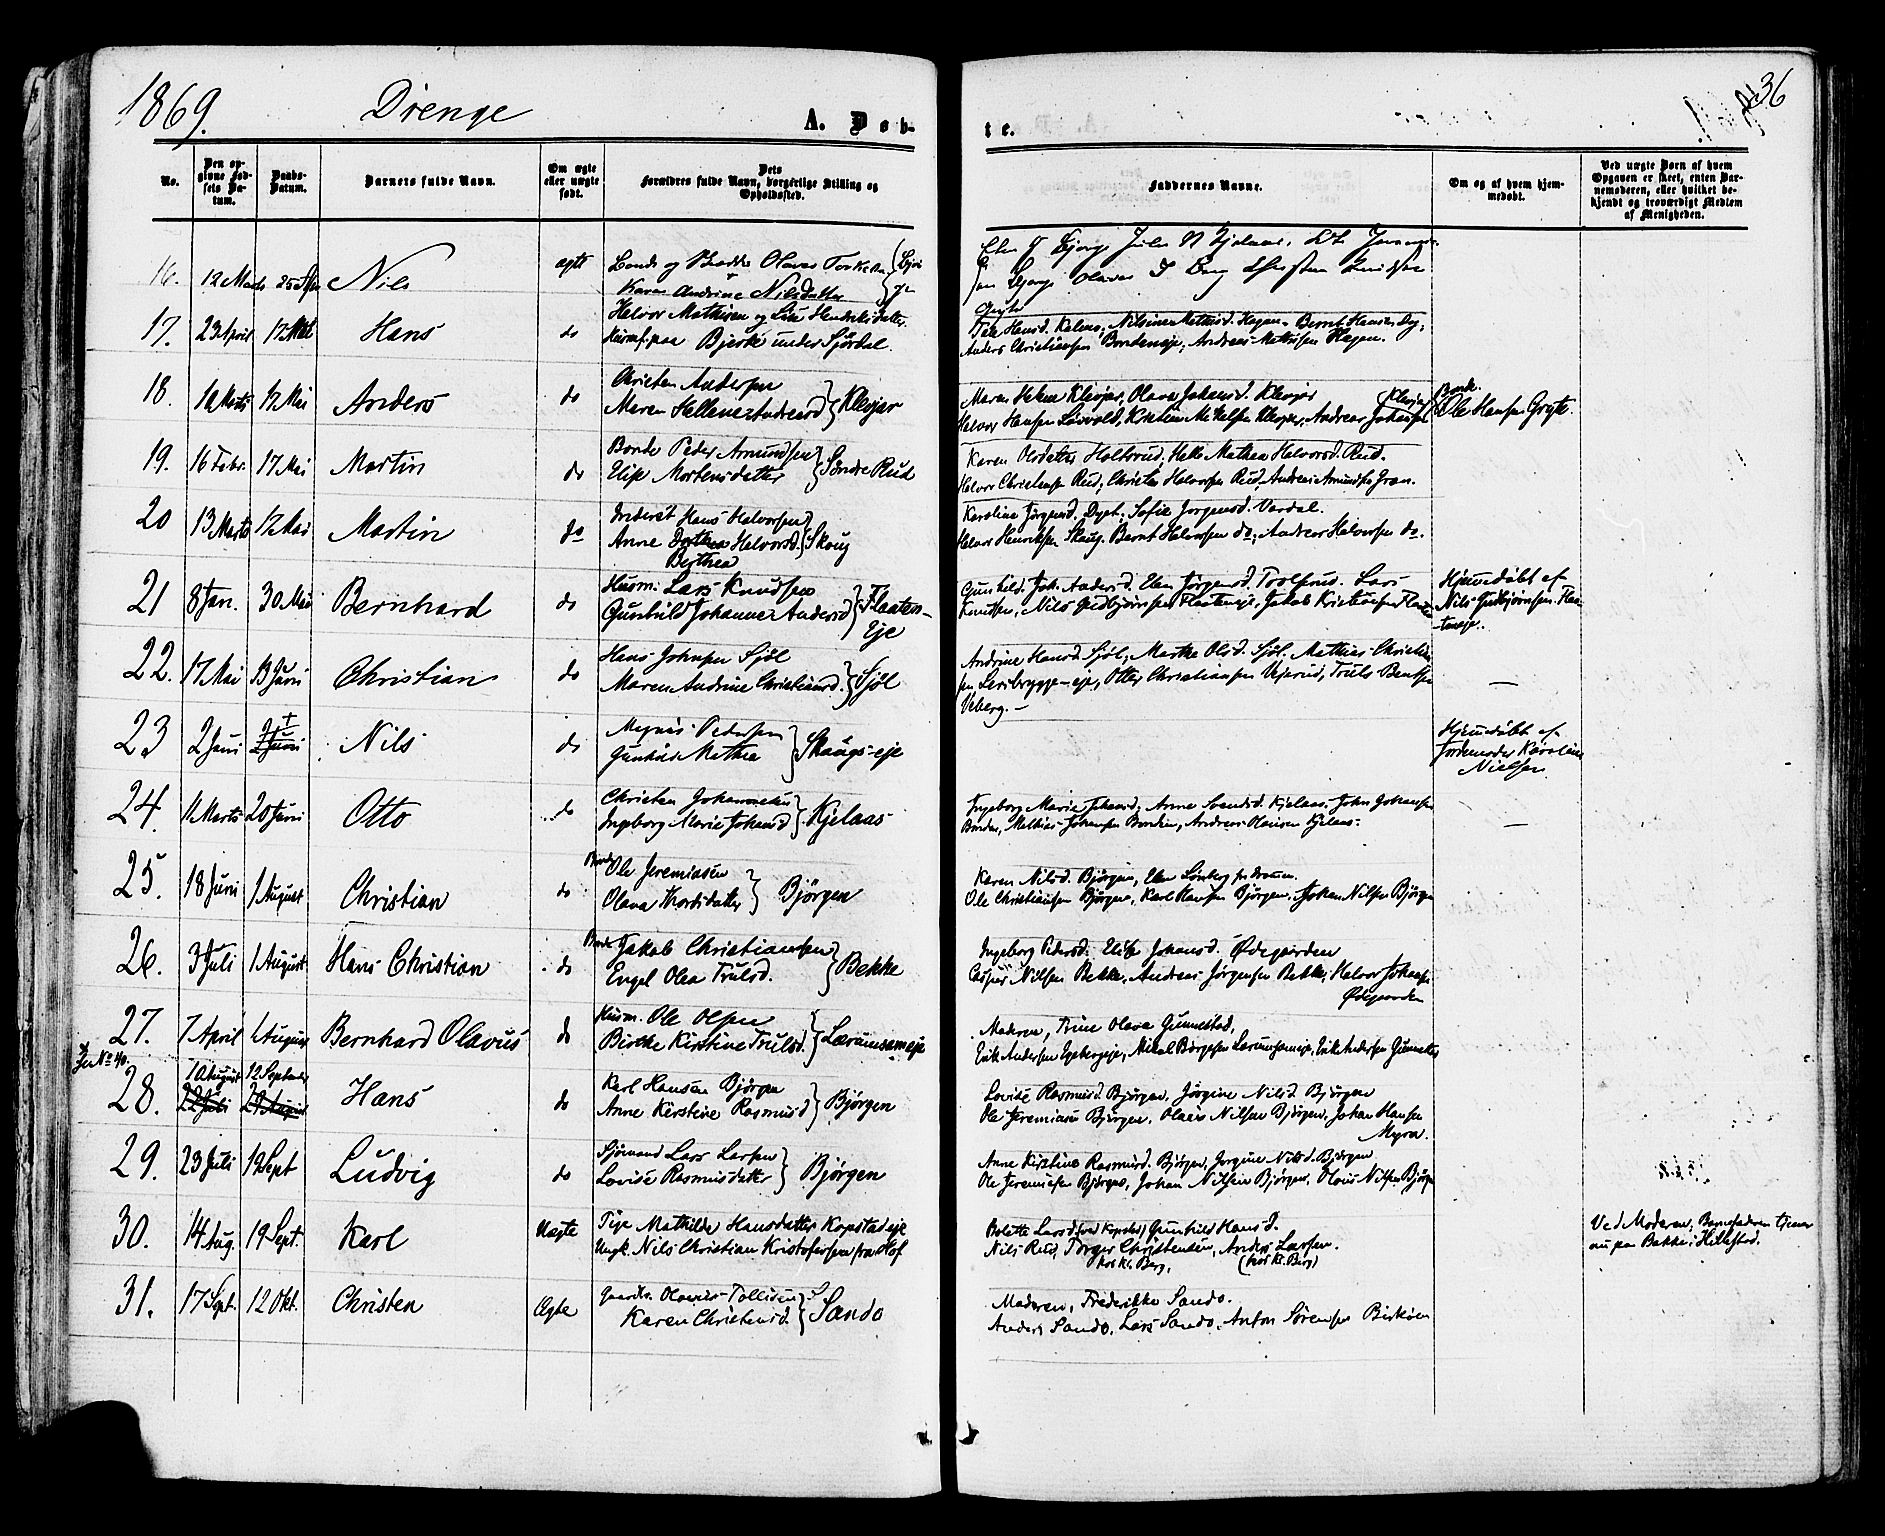 1869.
Drenge
A. Døb-
te.
36
No.
Den op-
givne Fød-
sels Da-
tum.
Daabs-
Datum.
Barnets fulde Navn.
Om ægte
eller uægte
født.
Dets
Forældres fulde Navn, borgerlige Stilling og
Opholdssted.
Faddernes Navne.
Om og af hvem hjem-
medøbt.
Ved uægte Børn af hvem
Opgaven er skeet, enten Bar-
nemoderen, eller hvilket be-
kjendt og troværdigt Medlem
af Menigheden.
16. 12 Marts Nils ægte
Karen Andrine Nilsdatter
17. 23 April 17 Mai Hans do Helvor Mathisen og Lise Hendriksdatter
Husmf. paa Bjerke under Sjørdal.
Anders Christiansen Bondeneje, Andreas Mathisen Hagen.
18. 12 Mai Anders do Christen Andersen
Maren Hellene Andersd Klevjer
Maren Helene Klevjer, Olava Johansd. Klevjer
Helvor Hansen Løvvold, Andreas Johansen Klevjer
Ole Hansen Gryte.
19. 16 Febr. 17 Mai Martin do Bonde Peder Amundsen
Elise Mortensdatter Søndre Rud
Karen Olsdatter Holtsrud, Helle Mathea Helvorsd. Rud.
Helvor Christensen Rud, Christen Helvorsen Rud, Andreas Amundsen Gran.
20 13 Marts 17 Mai Martin do Inderst Hans Halvorsen
Anne Dorthea Helvorsd. Skoug
Berthea
Karoline Jørgensd. Dypt, Sofie Jorgensd. Vardal.
Helvor Henriksen Skaug. Bernt Helvorsen do, Andreas Helvorsen do.
21 8 Jan. 30 Mai Bernhard do Husm. Lars Knudsen
Gunhild Johanne Andersd Flaaten-
Eje
Gunhild Joh. Andersd. Elen Jørgensd. Trolsrud. Lars
Knudsen, Nils Gudbjørnsen Flaateneje, Jakob Kristiansen
Hjemmedøbt af
Nils Gudbjørnsen Flaa-
teneje.
22. 17 Mai 13 Juni Christian do Hans Johnsen Sjøl
Maren Andrine Christiansd. Sjøl
Andrine Hansd. Sjøl, Marthe Olsd. Sjøl. Mathias Christian-
sen Lersbrygge-eje, Otter Christiansen Vejerud, Truls Bentsen
Veberg. -
—
23 2 Juni Nils do Magnus Pedersen
Gunhild Mathea Skougs-eje
Hjemmedøbt af
Jordemoder Karoline
Nielsen
24. 11 Marts 20 Juni Otto do Christen Johannesen
Ingeborg Marie Johansd Kjelaas
Ingeborg Marie Johansd, Anne Svendsd. Kjelaas, John Johansen
Borden, Mathias Johansen Borden, Andreas Olausen Kjelaas.
—
25. 18 Juni 1 August Christian do Bonde Ole Jeremiasen
Olava Thordsdatter Bjørgen
Karen Nilsd. Bjørgen, Elen Lønberg fra Dramen.
Ole Christiansen Bjørgen, Karl Hansen Bjørgen, Johan Nilsen Bjørgen
26. 3 Juli 1 August Hans Christian do Bonde Jakob Christiansen
Engel Olea Trulsd. Bekke
Ingeborg Pedersd. Elise Johansd. Ødegaarden
Casper Nilsen Bekke, Andreas Jørgensen Bekke, Halvor Johansen
Ødegaarden
27. 7 April 1 August Bernhard Olavus do Husm. Ole Olsen
Birthe Kirstine Trulsd. Lærumsameje
Moderen, Trine Olava Gunnestad,
Erik Andersen Egebergeje, Mikal Børgesen Lærumsameje, Erik Andersen Gunnestad
Se No 40.
28. 1 August 12 September
22 Juli 29 August Hans do Karl Hansen Bjørgen
Anne Kirstine Rasmusd Bjørgen
Lovise Rasmusd. Bjørgen, Jørgine Nilsd Bjørgen
Ole Jeremiasen Bjørgen, Olaus Nilsen Bjørgen, Johan Hansen
Myra.
29. 23 Juli 12 Sept Ludvig do Sjømand Lars Larsen
Lovise Rasmusdatter Bjørgen
Anne Kirstine Rasmusd. Bjørgen, Jorgine Nilsd. Bjørgen
Ole Jeremiasen Bjørgen, Johan Nilsen Bjørgen, Olaus Nilsen Bjørgen
30. 14 Aug. 19 Sept. Karl Uægte Pige Mathilde Hansdatter Kopstadeje
Ungk. Nils Christian Kristofersen fra Hof
Gunhild Hansd.
Nils Rud, Torger Christensen, Anders Larsen.
hos Kl. Berg, (hos Kl. Berg)
Ved Moderen; Barnefaderen tjener
nu paa Bakke i Hillestad.
31. 17 Sept. 12 Okt. Christen Ægte Gaardbr. Olavus Tollidsen
Karen Christensd. Sando
Moderen, Frederikke Sando.
Anders Sando, Lars Sando, Anton Sørensen